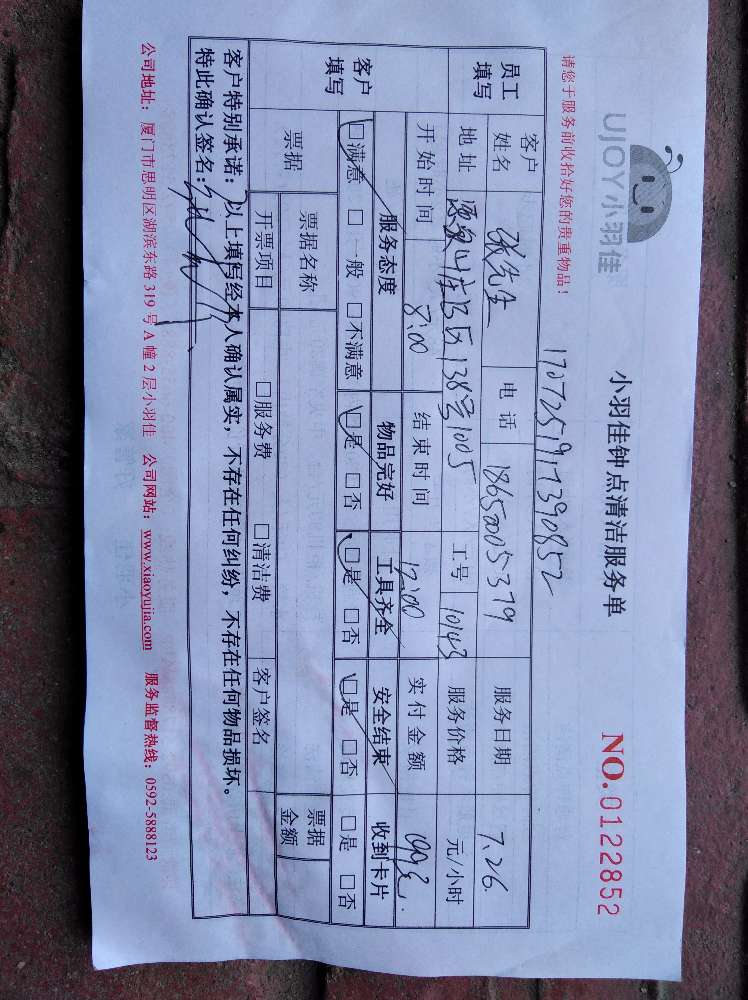 UJOY小羽佳
小羽佳钟点清洁服务单
NO.0122852
请您于服务前收拾好您的贵重物品！
1707251917390852
员工填写 客户姓名 张先生 电话 18650005379 服务日期 7.26.
地址 山庄B区138号1005 工号 10143 服务价格 元/小时
开始时间 8:00 结束时间 12:00 实付金额
客户填写 服务态度 物品完好 工具齐全 安全结束 收到卡片
□满意 □一般 □不满意 □是 □否 □是 □否 □是 □否 □是 □否
票据 票据名称 票据金额
开票项目 □服务费 □清洁费 客户签名
客户特别承诺：以上填写经本人确认属实，不存在任何纠纷，不存在任何物品损坏。
特此确认签名：
公司地址：厦门市思明区湖滨东路319号A幢2层小羽佳 公司网站：www.xiaoyujia.com 服务监督热线：0592-5888123